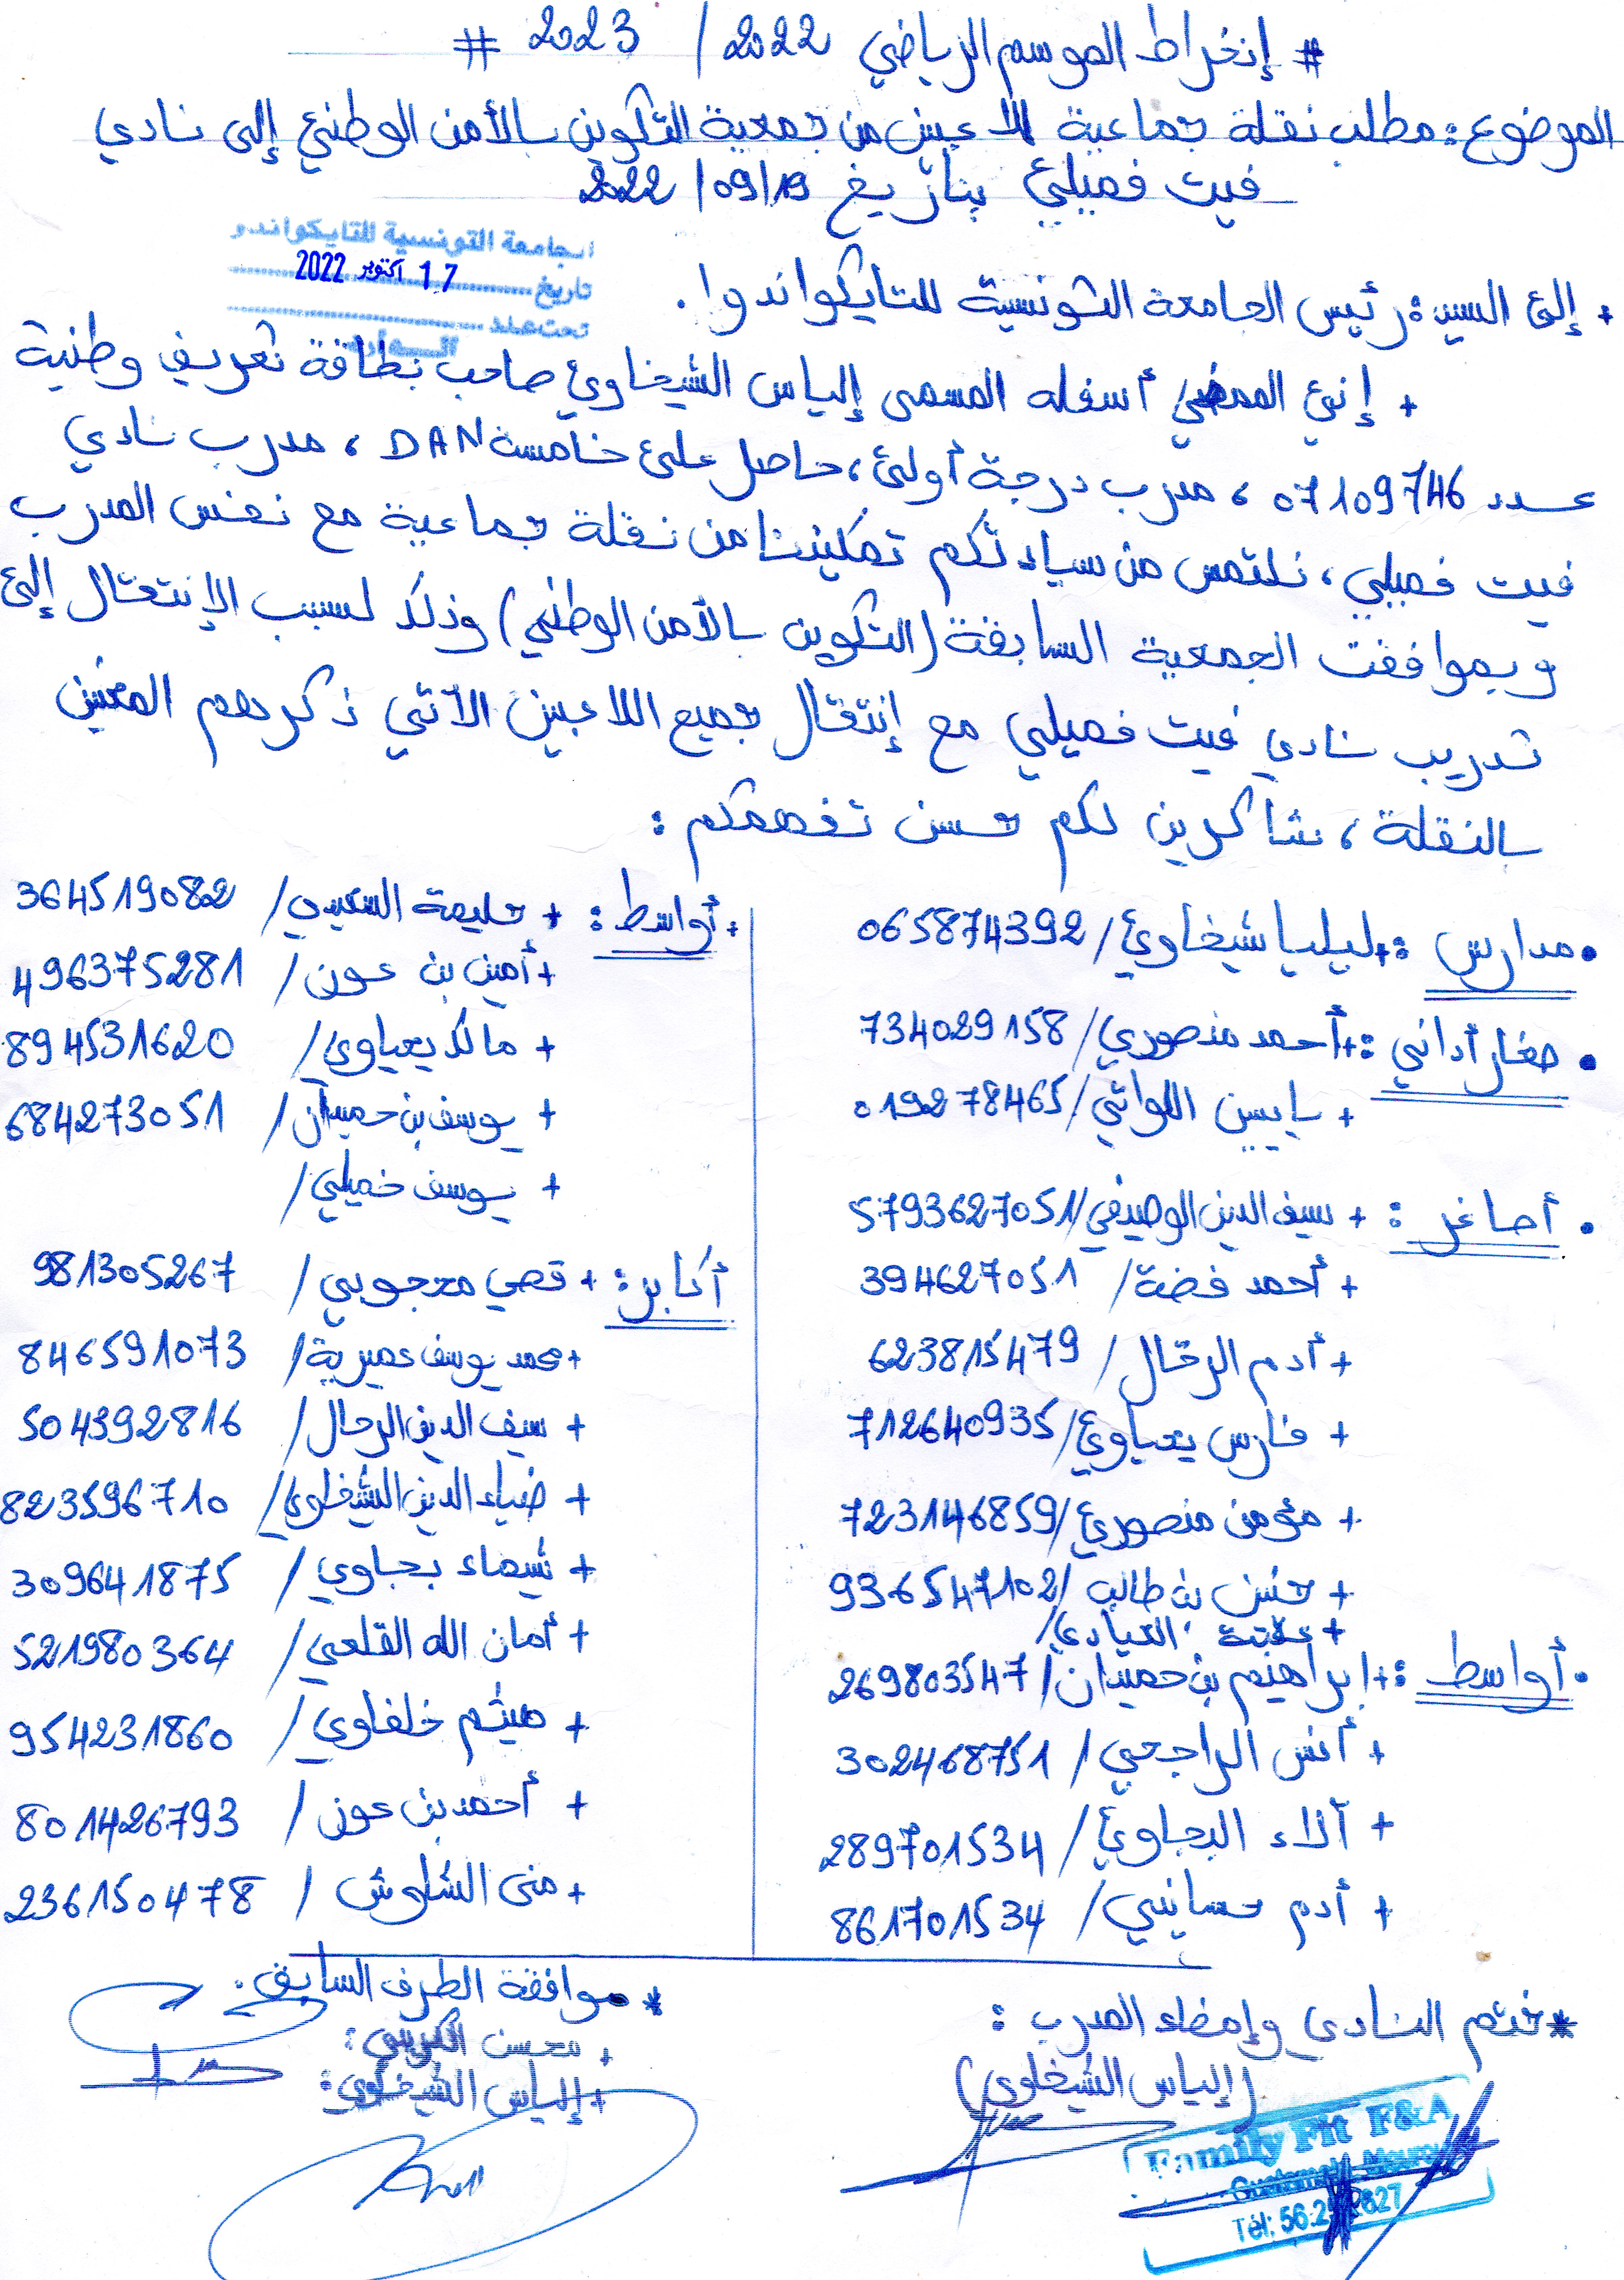 # إنخراط الموسم الرياضي 2022 / 2023 #
الموضوع: مطلب نقلة جماعية للاعبين من جمعية التكوين بالأمن الوطني إلى نادي
فيت فميلي بتاريخ 19/09/2022
الجامعة التونسية للتايكواندو
تاريخ 17 أكتوبر 2022
تحت عدد
الــوارد
+ إلى السيد: رئيس الجامعة التونسية للتايكواندوا.
+ إني الممضي أسفله المسمى إلياس الشيخاوي صاحب بطاقة تعريف وطنية
عدد 07109746، مدرب درجة أولى، حاصل على خامسة DAN، مدرب نادي
فيت فميلي، نلتمس من سيادتكم تمكيننا من نقلة جماعية مع نفس المدرب
وبموافقت الجمعية السابقة (التكوين بالأمن الوطني) وذلك لسبب الإنتقال إلى
تدريب نادي فيت فميلي مع إنتقال جميع اللاعبين الآتي ذكرهم المعنين
بالنقلة، شاكرين لكم حسن تفهمكم:
• مدارس: + ليليا شيخاوي / 065874392
• صغار أداني: + أحمد منصوري / 734029158
+ ياسين اللواتي / 019278465
• أصاغر: + سيف الدين الوصيفي / 5793627051
+ أحمد فضة / 394627051
+ أدم الرحال / 623815479
+ فارس يحياوي / 712640935
+ مؤمن منصوري / 723146859
+ حسن بن طالب / 936547102
+ علاية العيادي /
• أواسط: + إبراهيم بن حميدان / 269803547
+ أنس الراجحي / 302468751
+ آلاء البجاوي / 289701534
+ أدم حسايني / 861701534
• أواسط: + حليمة السعيدي / 364519082
+ أمين بن عون / 496375281
+ مالك يحياوي / 894531620
+ يوسف بن حميدان / 684273051
+ يوسف خميلي /
أكابر: + قصي محجوبي / 981305267
+ محمد يوسف عميرية / 846591073
+ سيف الدين الرحال / 504392816
+ ضياء الدين الشيخاوي / 823596710
+ شيماء بجاوي / 309641875
+ أمان الله القلعي / 521980364
+ هيثم خلفاوي / 954231860
+ أحمد بن عون / 801426793
+ منى الشلوش / 2361150478
* ختم النادي وإمضاء المدرب:
(إلياس الشيخاوي)
Family Fit F&A
Tél: 56.2
* موافقة الطرف السابق.
+ محسن الكريمي:
+ إلياس الشيخاوي: